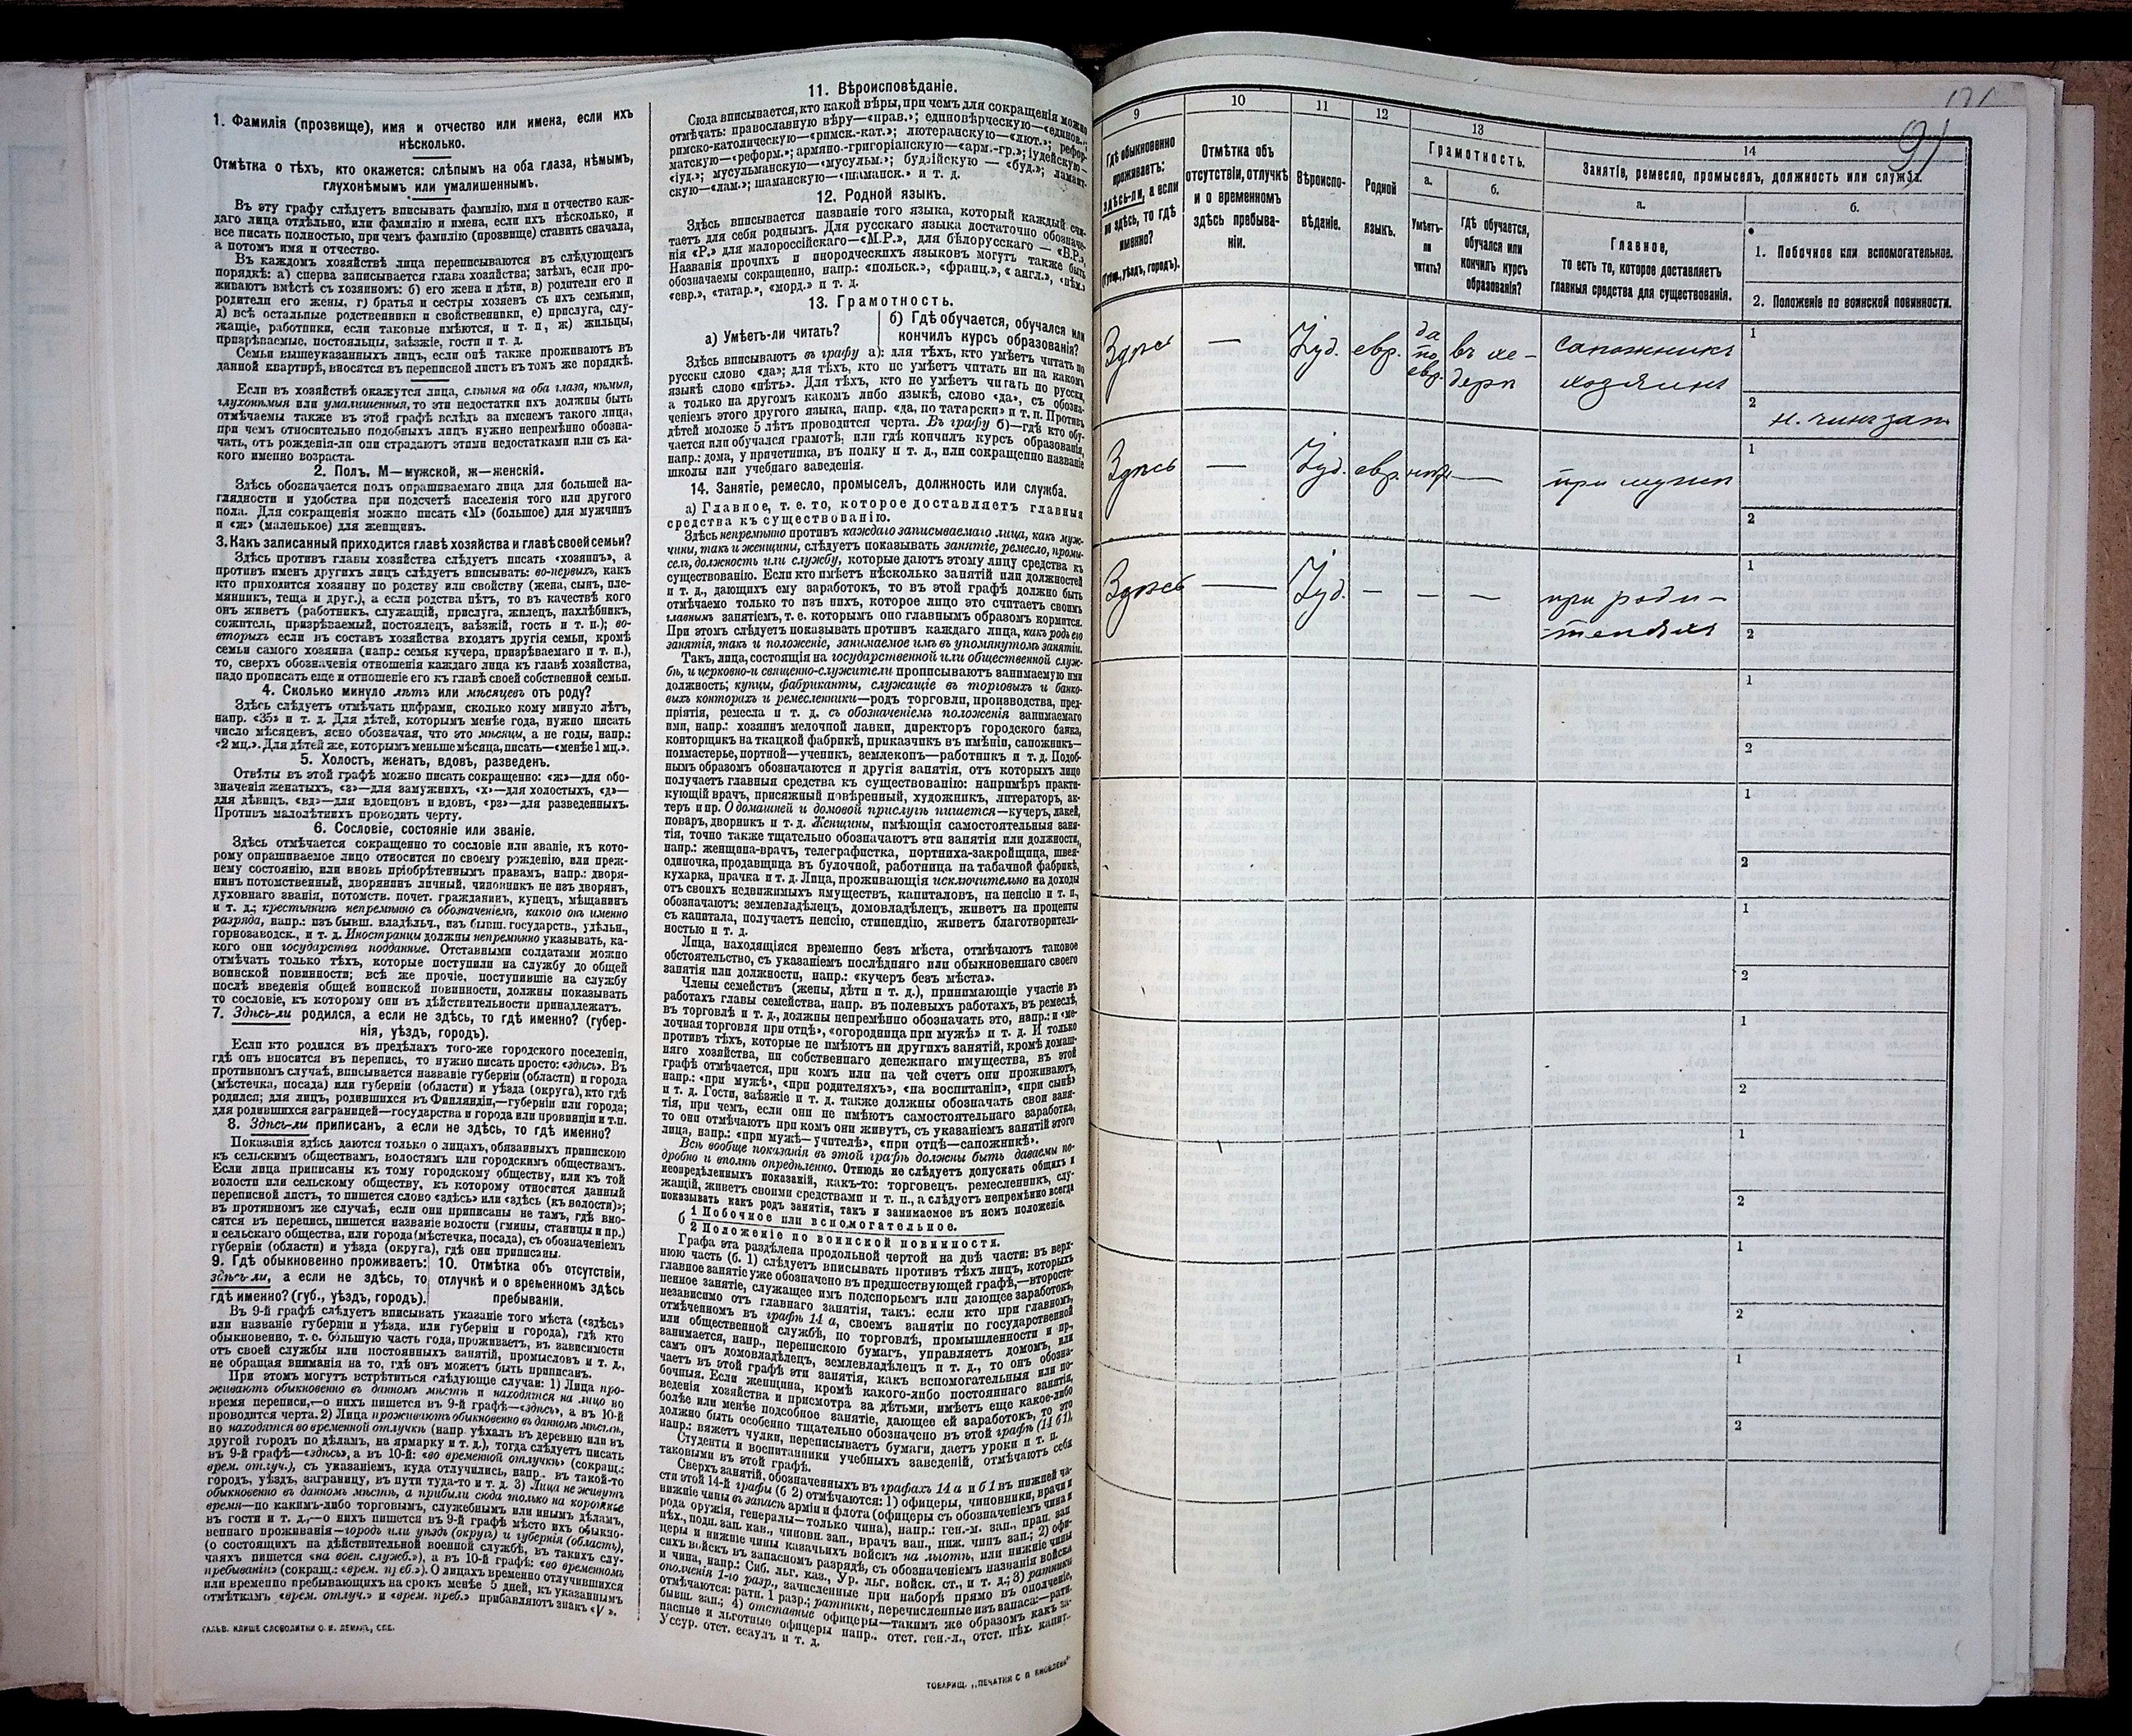 1. Фамилія (прозвище), имя и отчество или имена, если ихъ
нѣсколько.
Отмѣтка о тѣхъ, кто окажется: слѣпымъ на оба глаза, нѣмымъ,
глухонѣмымъ или умалишеннымъ.
Въ эту графу слѣдуетъ вписывать фамилію, имя и отчество каж-
даго лица отдѣльно, или фамилію и имена, если ихъ нѣсколько, и
все писать полностью, при чемъ фамилію (прозвище) ставить сначала,
а потомъ имя и отчество.
Въ каждомъ хозяйствѣ лица переписываются въ слѣдующемъ
порядкѣ: а) сперва записывается глава хозяйства; затѣмъ, если про-
живаютъ вмѣстѣ съ хозяиномъ: б) его жена и дѣти, в) родители его и
родители его жены, г) братья и сестры хозяевъ съ ихъ семьями,
д) всѣ остальные родственники и свойственники, е) прислуга, слу-
жащіе, работники, если таковые имѣются, и т. п, ж) жильцы,
призрѣваемые, постояльцы, заѣзжіе, гости и т. д.
Семьи вышеуказанныхъ лицъ, если онѣ также проживаютъ въ
данной квартирѣ, вносятся въ переписной листъ въ томъ же порядкѣ.
Если въ хозяйствѣ окажутся лица, слѣпыя на оба глаза, нѣмыя,
глухонѣмыя или умалишенныя, то эти недостатки ихъ должны быть
отмѣчаемы также въ этой графѣ вслѣдъ за именемъ такого лица,
при чемъ относительно подобныхъ лицъ нужно непремѣнно обозна-
чать, отъ рожденія-ли они страдаютъ этими недостатками или съ ка-
кого именно возраста.
2. Полъ. М—мужской, ж—женскій.
Здѣсь обозначается полъ опрашиваемаго лица для большей на-
глядности и удобства при подсчетѣ населенія того или другого
пола. Для сокращенія можно писать «М» (большое) для мужчинъ
и «ж» (маленькое) для женщинъ.
3. Какъ записанный приходится главѣ хозяйства и главѣ своей семьи?
Здѣсь противъ главы хозяйства слѣдуетъ писать «хозяинъ», а
противъ именъ другихъ лицъ слѣдуетъ вписывать: во-первыхъ, какъ
кто приходится хозяину по родству или свойству (жена, сынъ, пле-
мянникъ, теща и друг.), а если родства нѣтъ, то въ качествѣ кого
онъ живетъ (работникъ, служащій, прислуга, жилецъ, нахлѣбникъ,
сожитель, призрѣваемый, постоялецъ, заѣзжій, гость и т. п.); во-
вторыхъ если въ составъ хозяйства входятъ другія семьи, кромѣ
семьи самого хозяина (напр.: семья кучера, призрѣваемаго и т. п.),
то, сверхъ обозначенія отношенія каждаго лица къ главѣ хозяйства,
надо прописать еще и отношеніе его къ главѣ своей собственной семьи.
4. Сколько минуло лѣтъ или мѣсяцевъ отъ роду?
Здѣсь слѣдуетъ отмѣчать цифрами, сколько кому минуло лѣтъ,
напр. «35» и т. д. Для дѣтей, которымъ менѣе года, нужно писать
число мѣсяцевъ, ясно обозначая, что это мѣсяцы, а не годы, напр.:
«2 мц.». Для дѣтей же, которымъ меньше мѣсяца, писать—«менѣе 1 мц.».
5. Холостъ, женатъ, вдовъ, разведенъ.
Отвѣты въ этой графѣ можно писать сокращенно: «ж»—для обо-
значенія женатыхъ, «з»—для замужнихъ, «х»—для холостыхъ, «д»—
для дѣвицъ, «вд»—для вдовцовъ и вдовъ, «рз»—для разведенныхъ.
Противъ малолѣтнихъ проводить черту.
6. Сословіе, состояніе или званіе.
Здѣсь отмѣчается сокращенно то сословіе или званіе, къ кото-
рому опрашиваемое лицо относится по своему рожденію, или преж-
нему состоянію, или вновь пріобрѣтеннымъ правамъ, напр.: дворя-
нинъ потомственный, дворянинъ личный, чиновникъ не изъ дворянъ,
духовнаго званія, потомств. почет. гражданинъ, купецъ, мѣщанинъ
и т. д.; крестьянинъ непремѣнно съ обозначеніемъ, какого онъ именно
разряда, напр.: изъ бывш. владѣльч., изъ бывш. государств., удѣльн.,
горнозаводск., и т. д. Иностранцы должны непремѣнно указывать, ка-
кого они государства подданные. Отставными солдатами можно
отмѣчать только тѣхъ, которые поступили на службу до общей
воинской повинности; всѣ же прочіе, поступившіе на службу
послѣ введенія общей воинской повинности, должны показывать
то сословіе, къ которому они въ дѣйствительности принадлежатъ.
7. Здѣсь-ли родился, а если не здѣсь, то гдѣ именно? (губер-
нія, уѣздъ, городъ).
Если кто родился въ предѣлахъ того-же городского поселенія,
гдѣ онъ вносится въ перепись, то нужно писать просто: «здѣсь». Въ
противномъ случаѣ, вписывается названіе губерніи (области) и города
(мѣстечка, посада) или губерніи (области) и уѣзда (округа), кто гдѣ
родился; для лицъ, родившихся въ Финляндіи,—губерніи или города;
для родившихся заграницей—государства и города или провинціи и т.п.
8. Здѣсь-ли приписанъ, а если не здѣсь, то гдѣ именно?
Показанія здѣсь даются только о лицахъ, обязанныхъ припискою
къ сельскимъ обществамъ, волостямъ или городскимъ обществамъ.
Если лица приписаны къ тому городскому обществу, или къ той
волости или сельскому обществу, къ которому относится данный
переписной листъ, то пишется слово «здѣсь» или «здѣсь (къ волости)»;
въ противномъ же случаѣ, если они приписаны не тамъ, гдѣ вно-
сятся въ перепись, пишется названіе волости (гмины, станицы и пр.)
и сельскаго общества, или города (мѣстечка, посада), съ обозначеніемъ
губерніи (области) и уѣзда (округа), гдѣ они приписаны.
9. Гдѣ обыкновенно проживаетъ:
здѣсь-ли, а если не здѣсь, то
гдѣ именно? (губ., уѣздъ, городъ).
10. Отмѣтка объ отсутствіи,
отлучкѣ и о временномъ здѣсь
пребываніи.
Въ 9-й графѣ слѣдуетъ вписывать указаніе того мѣста («здѣсь»
или названіе губерніи и уѣзда, или губерніи и города), гдѣ кто
обыкновенно, т. е. бо́льшую часть года, проживаетъ, въ зависимости
отъ своей службы или постоянныхъ занятій, промысловъ и т. д.,
не обращая вниманія на то, гдѣ онъ можетъ быть приписанъ.
При этомъ могутъ встрѣтиться слѣдующіе случаи: 1) Лица про-
живаютъ обыкновенно въ данномъ мѣстѣ и находятся на лицо во
время переписи,—о нихъ пишется въ 9-й графѣ—«здѣсь», а въ 10-й
проводится черта. 2) Лица проживаютъ обыкновенно въ данномъ мѣстѣ,
но находятся во временной отлучкѣ (напр. уѣхалъ въ деревню или въ
другой городъ по дѣламъ, на ярмарку и т. д.), тогда слѣдуетъ писать
въ 9-й графѣ—«здѣсь», а въ 10-й: «во временной отлучкѣ» (сокращ.:
врем. отлуч.), съ указаніемъ, куда отлучились, напр. въ такой-то
городъ, уѣздъ, заграницу, въ пути туда-то и т. д. 3) Лица не живутъ
обыкновенно въ данномъ мѣстѣ, а прибыли сюда только на короткое
время—по какимъ-либо торговымъ, служебнымъ или инымъ дѣламъ,
въ гости и т. д.,—о нихъ пишется въ 9-й графѣ мѣсто ихъ обыкно-
веннаго проживанія—городъ или уѣздъ (округъ) и губернія (область),
(о состоящихъ на дѣйствительной военной службѣ, въ такихъ слу-
чаяхъ пишется «на воен. служб.»), а въ 10-й графѣ: «во временномъ
пребываніи» (сокращ.: «врем. преб.»). О лицахъ временно отлучившихся
или временно пребывающихъ на срокъ менѣе 5 дней, къ указаннымъ
отмѣткамъ «врем. отлуч.» и «врем. преб.» прибавляютъ знакъ «V».
ГАЛЬВ. КЛИШЕ СЛОВОЛИТНИ О. И. ЛЕМАНЪ, СПБ.
11. Вѣроисповѣданіе.
Сюда вписывается, кто какой вѣры, при чемъ для сокращенія можно
отмѣчать: православную вѣру—«прав.»; единовѣрческую—«единов.»;
римско-католическую—«римск.-кат.»; лютеранскую—«лют.»; рефор-
матскую—«реформ.»; армяно-григоріанскую—«арм.-гр.»; іудейскую—
«іуд.»; мусульманскую—«мусульм.»; буддійскую — «буд.»; ламаит-
скую—«лам.»; шаманскую—«шаманск.» и т. д.
12. Родной языкъ.
Здѣсь вписывается названіе того языка, который каждый счи-
таетъ для себя роднымъ. Для русскаго языка достаточно обозначе-
нія «Р.» для малороссійскаго—«М.Р.», для бѣлорусскаго — «В.Р.».
Названія прочихъ и инородческихъ языковъ могутъ также быть
обозначаемы сокращенно, напр.: «польск.», «франц.», «англ.», «нѣм.»
«евр.», «татар.», «морд.» и т. д.
13. Грамотность.
а) Умѣетъ-ли читать?
б) Гдѣ обучается, обучался или
кончилъ курсъ образованія?
Здѣсь вписываютъ въ графу а): для тѣхъ, кто умѣетъ читать по
русски слово «да»; для тѣхъ, кто не умѣетъ читать ни на какомъ
языкѣ слово «нѣтъ». Для тѣхъ, кто не умѣетъ читать по русски,
а только на другомъ какомъ либо языкѣ, слово «да», съ обозна-
ченіемъ этого другого языка, напр. «да, по татарски» и т. п. Противъ
дѣтей моложе 5 лѣтъ проводится черта. Въ графу б)—гдѣ кто обу-
чается или обучался грамотѣ, или гдѣ кончилъ курсъ образованія,
напр.: дома, у причетника, въ полку и т. д., или сокращенно названіе
школы или учебнаго заведенія.
14. Занятіе, ремесло, промыселъ, должность или служба.
а) Главное, т. е. то, которое доставляетъ главныя
средства къ существованію.
Здѣсь непремѣнно противъ каждаго записываемаго лица, какъ муж-
чины, такъ и женщины, слѣдуетъ показывать занятіе, ремесло, промы-
селъ, должность или службу, которые даютъ этому лицу средства къ
существованію. Если кто имѣетъ нѣсколько занятій или должностей
и т. д., дающихъ ему заработокъ, то въ этой графѣ должно быть
отмѣчаемо только то изъ нихъ, которое лицо это считаетъ своимъ
главнымъ занятіемъ, т. е. которымъ оно главнымъ образомъ кормится.
При этомъ слѣдуетъ показывать противъ каждаго лица, какъ родъ его
занятія, такъ и положеніе, занимаемое имъ въ упомянутомъ занятіи.
Такъ, лица, состоящія на государственной или общественной служ-
бѣ, и церковно-и священно-служители прописываютъ занимаемую ими
должность; купцы, фабриканты, служащіе въ торговыхъ и банко-
выхъ конторахъ и ремесленники—родъ торговли, производства, пред-
пріятія, ремесла и т. д. съ обозначеніемъ положенія занимаемаго
ими, напр.: хозяинъ мелочной лавки, директоръ городского банка,
конторщикъ на ткацкой фабрикѣ, приказчикъ въ имѣніи, сапожникъ—
подмастерье, портной—ученикъ, землекопъ—работникъ и т. д. Подоб-
нымъ образомъ обозначаются и другія занятія, отъ которыхъ лицо
получаетъ главныя средства къ существованію: напримѣръ практи-
кующій врачъ, присяжный повѣренный, художникъ, литераторъ, ак-
теръ и пр. О домашней и домовой прислугѣ пишется—кучеръ, лакей,
поваръ, дворникъ и т. д. Женщины, имѣющія самостоятельныя заня-
тія, точно также тщательно обозначаютъ эти занятія или должности,
напр.: женщина-врачъ, телеграфистка, портниха-закройщица, швея-
одиночка, продавщица въ булочной, работница на табачной фабрикѣ,
кухарка, прачка и т. д. Лица, проживающія исключительно на доходы
отъ своихъ недвижимыхъ имуществъ, капиталовъ, на пенсію и т. п.,
обозначаютъ: землевладѣлецъ, домовладѣлецъ, живетъ на проценты
съ капитала, получаетъ пенсію, стипендію, живетъ благотворитель-
ностью и т. д.
Лица, находящіяся временно безъ мѣста, отмѣчаютъ таковое
обстоятельство, съ указаніемъ послѣдняго или обыкновеннаго своего
занятія или должности, напр.: «кучеръ безъ мѣста».
Члены семействъ (жены, дѣти и т. д.), принимающіе участіе въ
работахъ главы семейства, напр. въ полевыхъ работахъ, въ ремеслѣ,
въ торговлѣ и т. д., должны непремѣнно обозначать это, напр.: и «ме-
лочная торговля при отцѣ», «огородница при мужѣ» и т. д. И только
противъ тѣхъ, которые не имѣютъ ни другихъ занятій, кромѣ домаш-
няго хозяйства, ни собственнаго денежнаго имущества, въ этой
графѣ отмѣчается, при комъ или на чей счетъ они проживаютъ,
напр.: «при мужѣ», «при родителяхъ», «на воспитаніи», «при сынѣ»
и т. д. Гости, заѣзжіе и т. д. также должны обозначать свои заня-
тія, при чемъ, если они не имѣютъ самостоятельнаго заработка,
то они отмѣчаютъ при комъ они живутъ, съ указаніемъ занятій этого
лица, напр.: «при мужѣ—учителѣ», «при отцѣ—сапожникѣ».
Всѣ вообще показанія въ этой графѣ должны быть даваемы по-
дробно и вполнѣ опредѣленно. Отнюдь не слѣдуетъ допускать общихъ и
неопредѣленныхъ показаній, какъ-то: торговецъ, ремесленникъ, слу-
жащій, живетъ своими средствами и т. п., а слѣдуетъ непремѣнно всегда
показывать какъ родъ занятія, такъ и занимаемое въ немъ положеніе.
б 1 Побочное или вспомогательное.
2 Положеніе по воинской повинности.
Графа эта раздѣлена продольной чертой на двѣ части: въ верх-
нюю часть (б. 1) слѣдуетъ вписывать противъ тѣхъ лицъ, которыхъ
главное занятіе уже обозначено въ предшествующей графѣ,—второсте-
пенное занятіе, служащее имъ подспорьемъ или дающее заработокъ,
независимо отъ главнаго занятія, такъ: если кто при главномъ,
отмѣченномъ въ графѣ 14 а, своемъ занятіи по государственной
или общественной службѣ, по торговлѣ, промышленности и пр.,
занимается, напр., перепискою бумагъ, управляетъ домомъ, или
самъ онъ домовладѣлецъ, землевладѣлецъ и т. д., то онъ обозна-
чаетъ въ этой графѣ эти занятія, какъ вспомогательныя или по-
бочныя. Если женщина, кромѣ какого-либо постояннаго занятія,
веденія хозяйства и присмотра за дѣтьми, имѣетъ еще какое-либо
болѣе или менѣе подсобное занятіе, дающее ей заработокъ, то это
должно быть особенно тщательно обозначено въ этой графѣ (14 б1),
напр.: вяжетъ чулки, переписываетъ бумаги, даетъ уроки и т. п.
Студенты и воспитанники учебныхъ заведеній, отмѣчаютъ себя
таковыми въ этой графѣ.
Сверхъ занятій, обозначенныхъ въ графахъ 14 а и б1 въ нижней ча-
сти этой 14-й графы (б 2) отмѣчаются: 1) офицеры, чиновники, врачи и
нижніе чины въ запасѣ арміи и флота (офицеры съ обозначеніемъ чина и
рода оружія, генералы—только чина), напр.: ген.-м. зап., прап. зап
пѣх., подп. зап. кав., чиновн. зап., врачъ зап., ниж. чинъ зап.; 2) офи-
церы и нижніе чины казачьихъ войскъ на льготѣ, или нижніе чины
сихъ войскъ въ запасномъ разрядѣ, съ обозначеніемъ названія войска
и чина, напр.: Сиб. льг. каз., Ур. льг. войск. ст., и т. д.; 3) ратники
ополченія 1-го разр., зачисленные при наборѣ прямо въ ополченіе,
отмѣчаются: ратн. 1 разр.; ратники, перечисленные изъ запаса:—ратн.
бывш. зап.; 4) отставные офицеры—такимъ же образомъ какъ за-
пасные и льготные офицеры напр.: отст. ген.-л., отст. пѣх. капит.,
Уссур. отст. есаулъ и т. д.
ТОВАРИЩ. „ПЕЧАТНЯ С П ЯКОВЛЕВА"
91
9
10
11
12
13
14
Гдѣ обыкновенно
проживаетъ:
здѣсь-ли, а если
не здѣсь, то гдѣ
именно?
(Губ., уѣздъ, городъ).
Отмѣтка объ
отсутствіи, отлучкѣ
и о временномъ
здѣсь пребыва-
ніи.
Вѣроиспо-
вѣданіе.
Родной
языкъ.
Грамотность.
а.
Умѣетъ-
ли
читать?
б.
Гдѣ обучается,
обучался или
кончилъ курсъ
образованія?
Занятіе, ремесло, промыселъ, должность или служба.
а.
Главное,
то есть то, которое доставляетъ
главныя средства для существованія.
б.
1. Побочное или вспомогательное.
2. Положеніе по воинской повинности.
Здѣсь — Іуд. евр. да по евр. въ хе-
дерѣ
сапожникъ
хозяинъ
1
2
н. чинъ зап.
Здѣсь — Іуд. евр. нѣтъ — при мужѣ
1
2
Здѣсь — Іуд. — — — при роди-
теляхъ
1
2
1
2
1
2
1
2
1
2
1
2
1
2
1
2